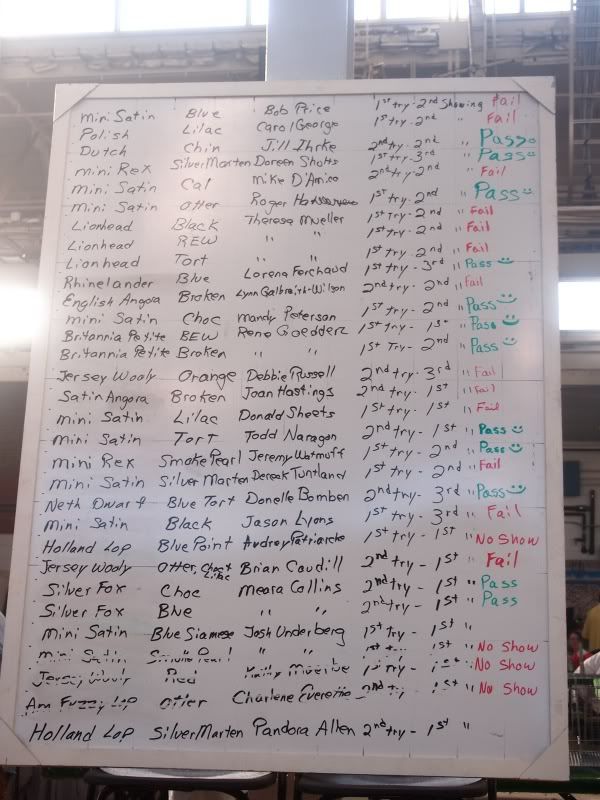 mini Satin Blue Bob Price 1st try - 2nd Showing Fail
Polish Lilac Carol George 1st try - 2nd " Fail
Dutch Chin Jill Ihrke 2nd try - 2nd " Pass
mini Rex Silver Marten Doreen Shotts 1st try - 3rd " Pass
mini Satin Cal Mike D'Amico 2nd try - 2nd " Fail
mini Satin Otter Roger 1st try - 2nd " Pass
Lionhead Black Theresa Mueller 1st try - 2nd " Fail
Lionhead REW " " 1st try - 2nd " Fail
Lionhead Tort " " 1st try - 2nd " Fail
Rhinelander Blue Lorena Ferchaud 1st try - 3rd " Pass
English Angora Broken Lynn Galbraith-Wilson 2nd try - 2nd " Fail
mini Satin Choc Mandy Peterson 1st try - 2nd " Pass
Britannia Petite BEW Rene Goedderz 1st try - 1st " Pass
Britannia Petite Broken " " 1st Try - 2nd " Pass
Jersey Wooly Orange Debbie Russell 2nd try - 3rd " Fail
Satin Angora Broken Joan Hastings 2nd try - 1st " Fail
mini Satin Lilac Donald Sheets 1st try - 1st " Fail
mini Satin Tort Todd Naragon 2nd try - 1st " Pass
mini Rex Smoke Pearl Jeremy Watmuff 1st try - 2nd " Pass
mini Satin Silver Marten Dereck Tuntland 1st try - 2nd " Fail
Neth Dwarf Blue Tort Donelle Bomben 2nd try - 3rd " Pass
mini Satin Black Jason Lyons 1st try - 3rd " Fail
Holland Lop Blue Point Audrey Patriarche 1st try - 1st " No Show
Jersey Wooly Otter, Choc + Lilac Brian Caudill 2nd try - 1st " Fail
Silver Fox Choc Meara Collins 2nd try - 1st " Pass
Silver Fox Blue " " 2nd try - 1st " Pass
mini Satin Blue Siamese Josh Underberg 1st try - 1st "
mini Satin Smoke Pearl " " 1st try - 1st " No Show
Jersey Wooly Red 1st try - 1st " No Show
Am Fuzzy Lop otter Charlene 2nd try - 1st " No Show
Holland Lop Silver Marten Pandora Allen 2nd try - 1st "